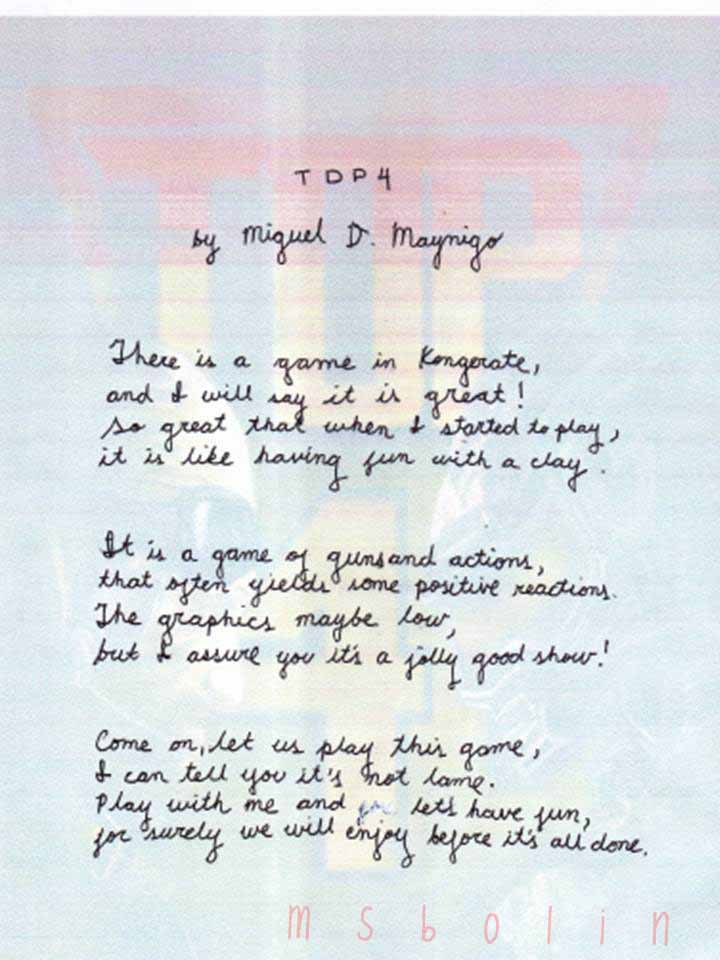 TDP4
by Miguel D. Maynigo
There is a game in Kongerate,
and I will say it is great!
So great that when I started to play,
it is like having fun with a clay.
It is a game of guns and actions,
that often yields some positive reactions.
The graphics maybe low,
but I assure you it's a jolly good show!
Come on, let us play this game,
I can tell you it's not lame.
Play with me and let's have fun,
for surely we will enjoy before it's all done.
msbolin
TDP
4